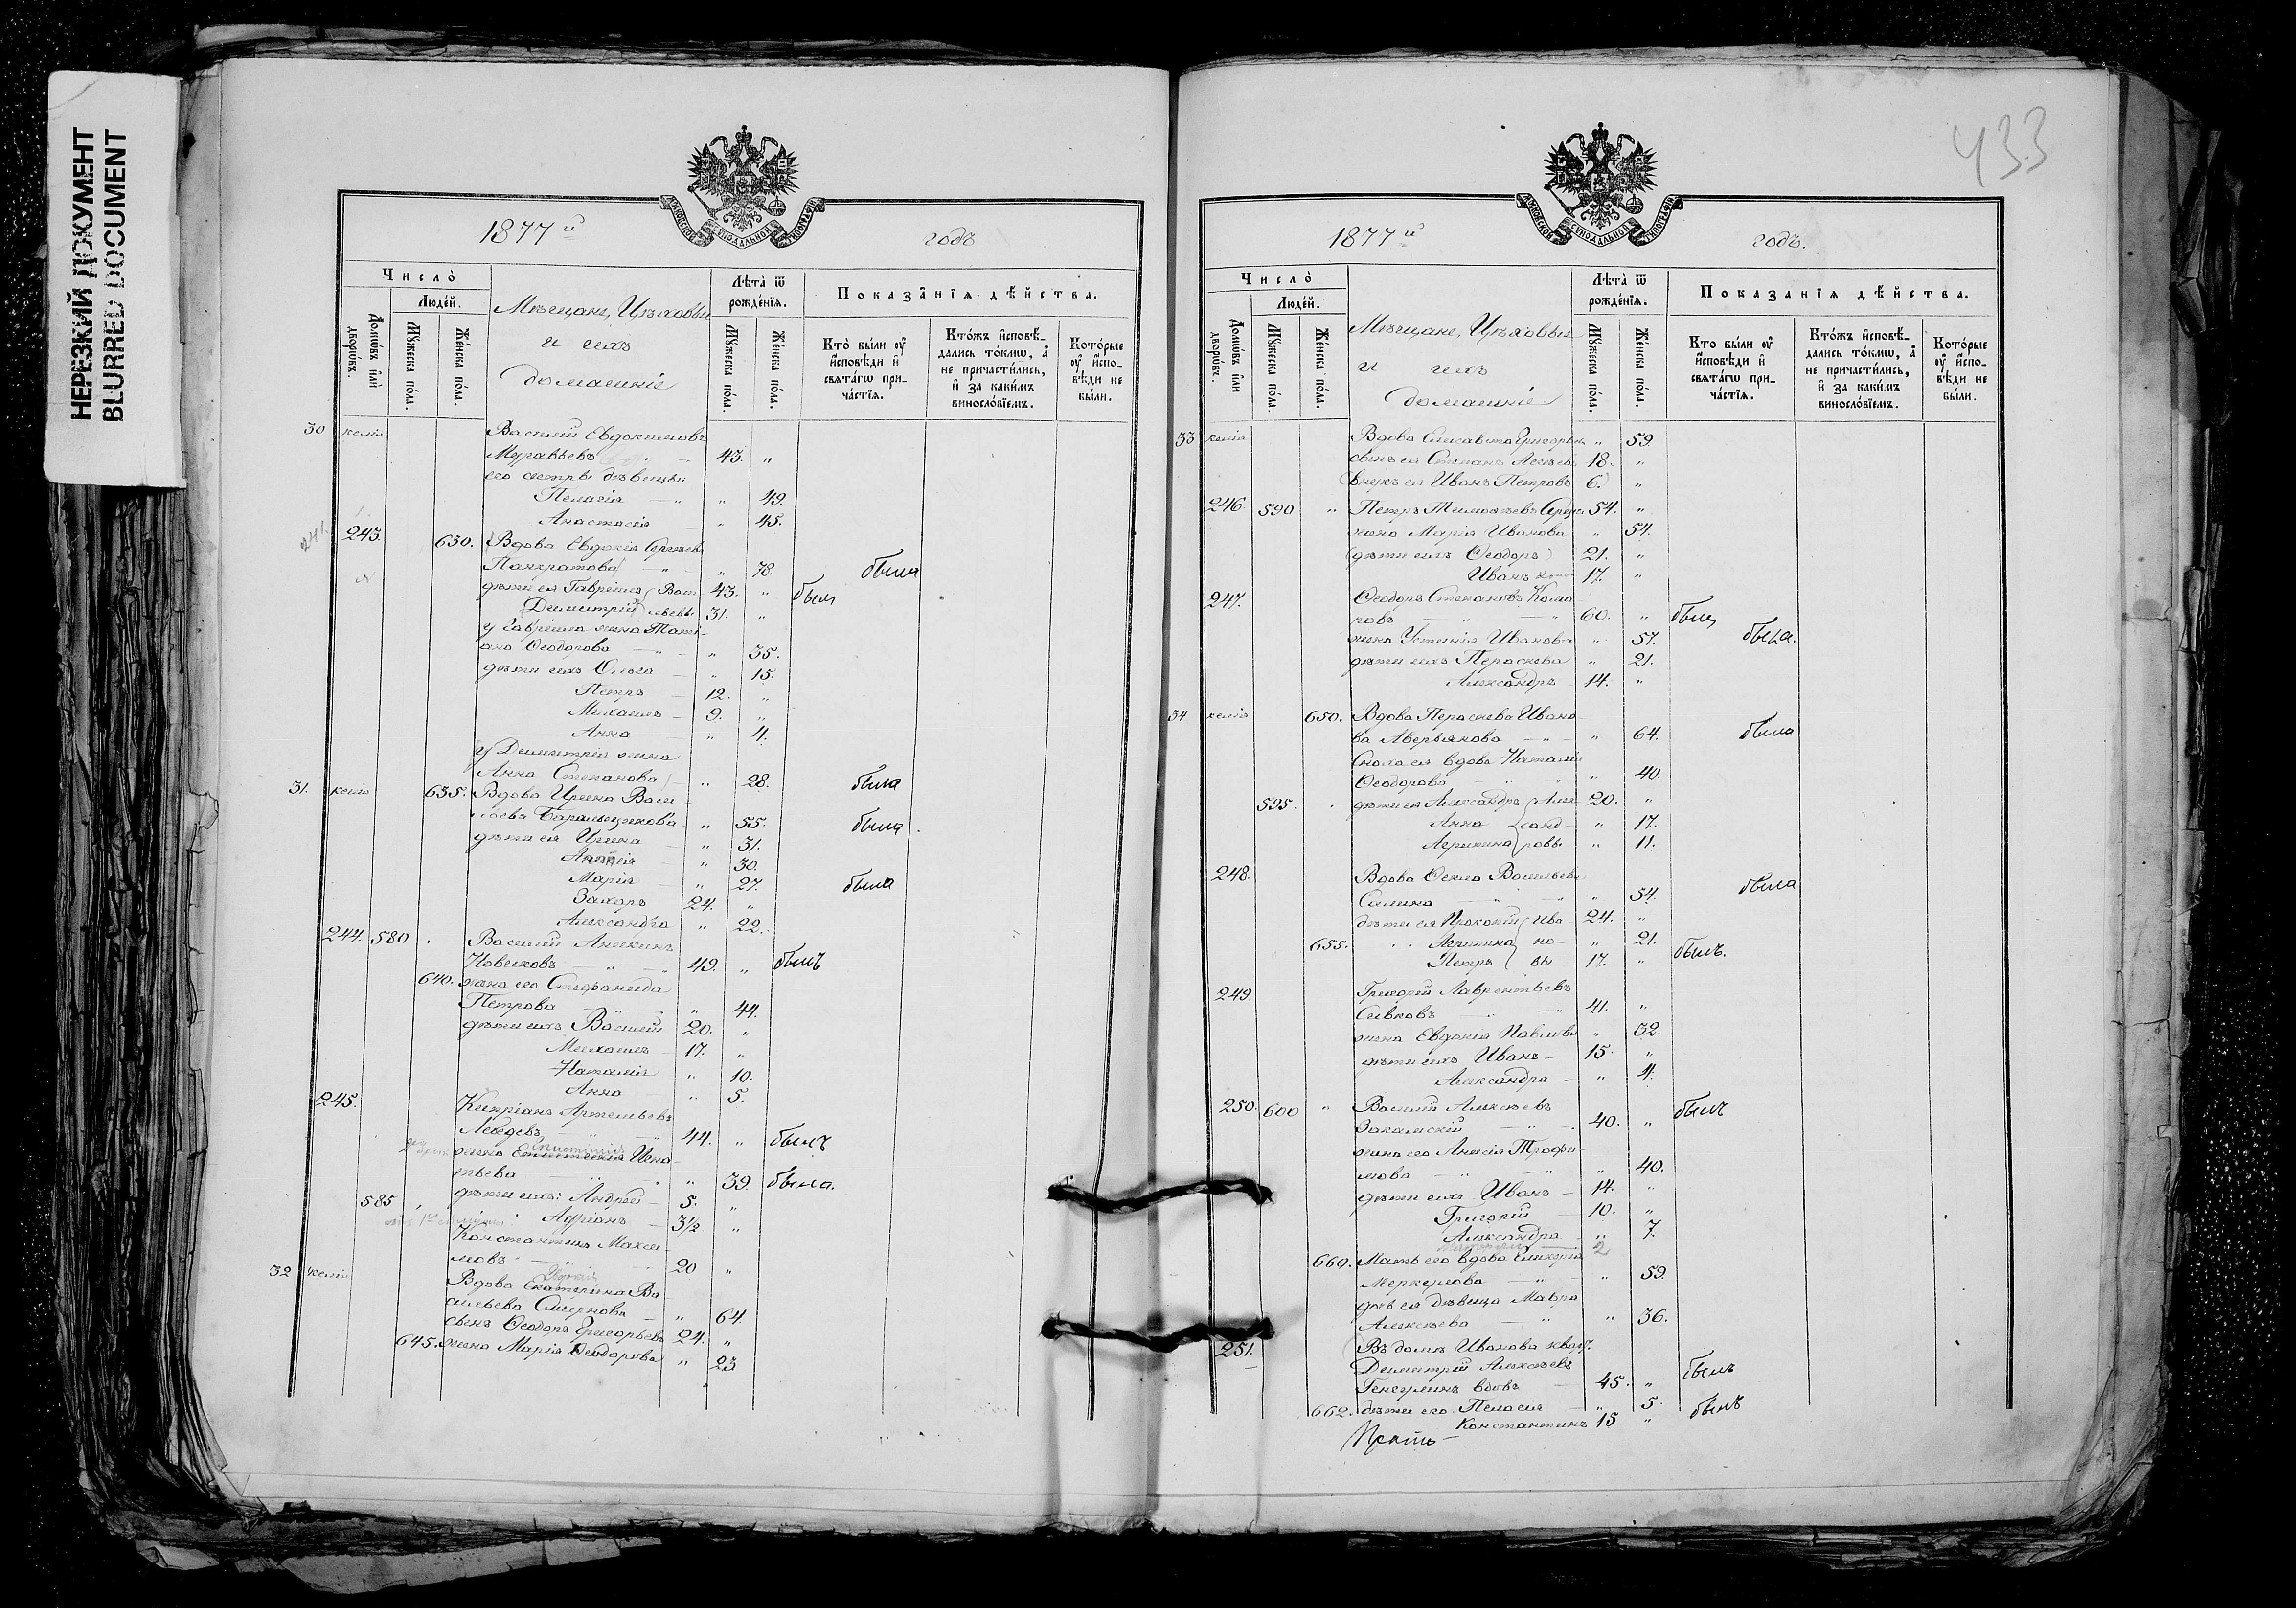 НЕРЕЗКИЙ ДОКУМЕНТ
BLURRED DOCUMENT
МОСКОВСКОЙ СѴНОДАЛЬНОЙ ТИПОГРАФІИ
1877й годъ
Число̀
Люде́й.
Домѡ́въ и҆лѝ дворѡ́въ.
Мꙋ́жеска по́ла.
Же́нска по́ла.
Мѣщане, Цѣховые
и ихъ
домашніе
Лѣта̀ ѿ рожде́нїѧ.
Мꙋ́жеска по́ла.
Же́нска по́ла.
Показа̑нїѧ дѣ́йства.
Кто̀ бы́ли ᲂу҆ и҆сповѣ́ди и҆ свѧта́гѡ прича́стїѧ.
Кто́жъ и҆сповѣ́дались то́кмѡ, а҆ не причасти́лись, и҆ за каки́мъ виносло́вїемъ.
Кото́рые ᲂу҆ и҆сповѣ́ди не бы́ли.
30 келія Василій Евдокимовъ
Муравьевъ — 43. „
его сестры дѣвицы:
Пелагія — „ „ 49.
Анастасія — „ 45.
241.
243. 630. Вдова Евдокія Сергѣева
Панкратова — „ „ 78. была
дѣти ея Гавріилъ Васи 43. „ былъ
Димитрій льевы 31. „
у Гавріила жена Тати-
ана Ѳеодорова — „ „ 35.
дѣти ихъ Ольга — „ 15.
Петръ — 12. „
Михаилъ — 9. „
Анна — „ 4.
у Димитрія жена
Анна Степанова — „ 28. была
31. келія 635. Вдова Ирина Васи-
льева Барановщикова „ 55. была.
дѣти ея Ирина — „ 31.
„ 30.
Марія — „ 27. была
Захаръ 24. „
Александра „ 22.
244. 580 Василій Аникинъ
Новиковъ — „ 49. „ былъ
640. жена его Стефанида
Петрова — „ „ 44.
дѣти ихъ Василій 20. „
Михаилъ — 17. „
Наталія — „ 10.
Анна — „ 5.
245. Кипріанъ Артемьевъ
Лебедевъ — „ 44. „ былъ
жена Епистимія Игна-
тьева — „ „ 39. была.
585 „ дѣти ихъ: Андрей — 5. „
Адріанъ — 3½ „
Константинъ Макси-
мовъ — 20 „
32 келія Вдова Екатерина Ва-
сильева Смирнова — „ 64.
сынъ Ѳеодоръ Григорьевъ 24. „
645. жена Марія Ѳеодорова „ 23
433
МОСКОВСКОЙ СѴНОДАЛЬНОЙ ТИПОГРАФІИ
1877й годъ.
Число̀
Люде́й.
Домѡ́въ и҆лѝ дворѡ́въ.
Мꙋ́жеска по́ла.
Же́нска по́ла.
Мѣщане, Цѣховые
и ихъ
домашніе
Лѣта̀ ѿ рожде́нїѧ.
Мꙋ́жеска по́ла.
Же́нска по́ла.
Показанїѧ дѣ́йства.
Кто бы́ли ᲂу҆ и҆сповѣ́ди и҆ свѧта́гѡ прича́стїѧ.
Кто́жъ и҆сповѣ́дались то́кмѡ, а҆ не причасти́лись, и҆ за каки́мъ виносло́вїемъ.
Кото́рые ᲂу҆ и҆сповѣ́ди не бы́ли.
33 келія Вдова Елисавета Григорьева „ 59
сынъ ея Степанъ 18. „
внукъ ея Иванъ Петровъ 6. „
246. 590 „ Петръ Тимоѳеевъ 54. „
жена Марія Иванова „ 54.
дѣти ихъ Ѳеодоръ 21. „
Иванъ 17. „
247. Ѳеодоръ Степановъ Кома-
ровъ — „ 60. „ былъ
жена Устинія Иванова „ 57. была.
дѣти ихъ Параскева „ 21.
Александръ 14. „
34 келія 650. Вдова Параскева Ивано-
ва Аверьянова — „ „ 64. была
Сноха ея вдова Наталія
Ѳеодорова „ „ 40.
595. дѣти ея Александръ Алек- 20. „
Анна санд- „ 17.
Агрипина ровы „ 11.
248. Вдова Ѳекла Васильева
Салина — „ „ 54. была
дѣти ея Прокопій Ива- 24. „
655. Агрипина но- „ 21.
Петръ вы 17. „ былъ.
249. Григорій Лаврентьевъ
Сивковъ — „ 41. „
жена Евдокія Павлова „ 32.
дѣти ихъ Иванъ — 15. „
Александра — „ 4.
250. 600 „ Василій Алексѣевъ былъ
Закамскій — „ 40. „
жена его Анисія Трофи-
мова — „ „ 40.
дѣти ихъ Иванъ — 14. „
Григорій — 10. „
Александра — „ 7.
2
660. Мать его вдова Гликерія
Меркулова — „ „ 59.
дочь ея дѣвица Мавра
Алексѣева — „ „ 36.
251. Въ домѣ Иванова кварт.
Димитрій Алексѣевъ
Генералинъ вдовъ 45. „ былъ
662. дѣти его Пелагія — „ 5.
Константинъ 15 „ былъ